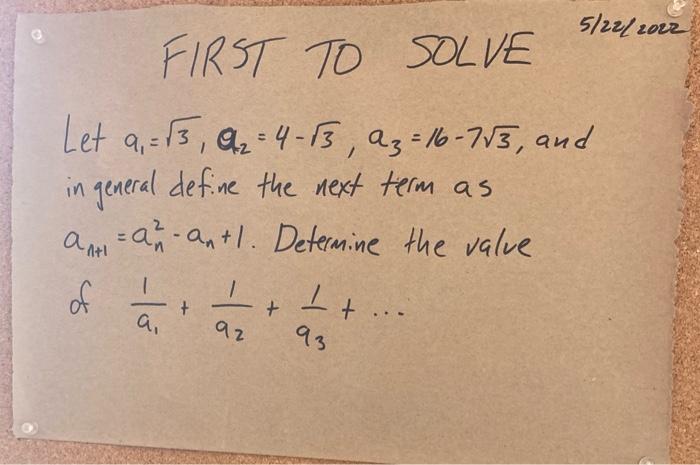 5/22/2022
FIRST TO SOLVE
Let a₁=√3, a₂=4-√3, a₃=16-7√3, and
in general define the next term as
aₙ₊₁=aₙ²-aₙ+1. Determine the value
of 1/a₁ + 1/a₂ + 1/a₃ + ...